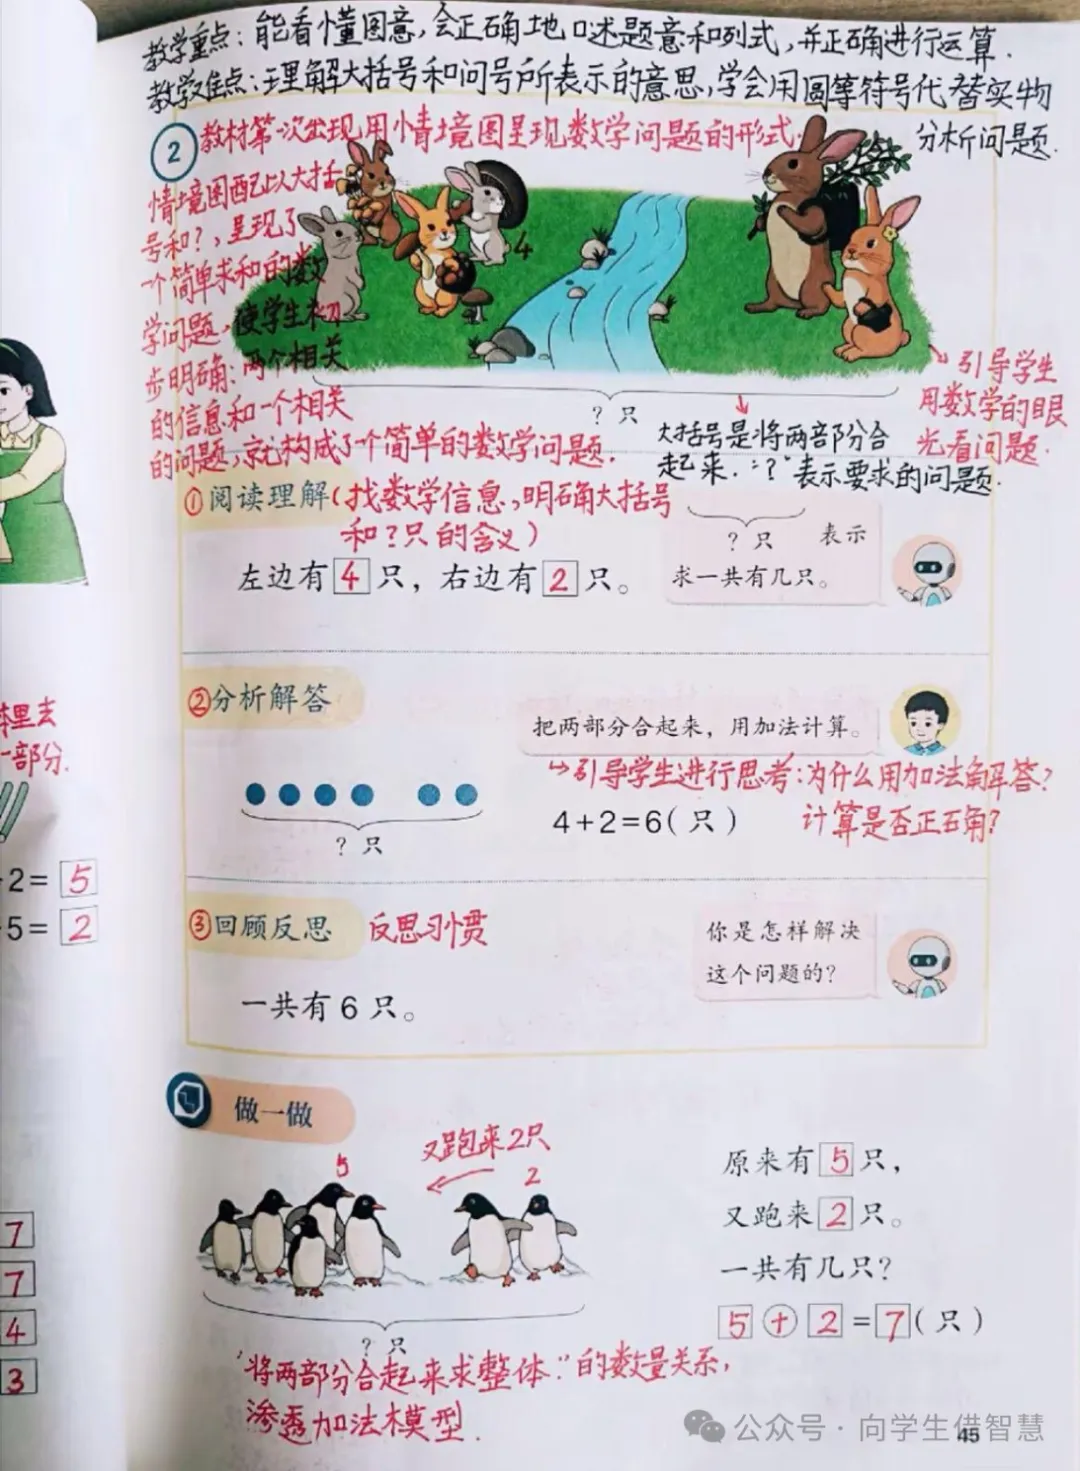 教学重点：能看懂图意，会正确地口述题意和列式，并正确进行运算．
教学难点：理解大括号和问号所表示的意思，学会用圆等符号代替实物
分析问题．
2
教材第一次出现用情境图呈现数学问题的形式．
情境图配以大括
号和？，呈现了
一个简单求和的数
学问题，使学生初
步明确：两个相关
的信息和一个相关
的问题，就构成了一个简单的数学问题．
4
？只
大括号是将两部分合
起来．“？”表示要求的问题．
引导学生
用数学的眼
光看问题．
①阅读理解（找数学信息，明确大括号
和？只的含义）
左边有4只，右边有2只。
？只 表示
求一共有几只。
②分析解答
把两部分合起来，用加法计算。
引导学生进行思考：为什么用加法解答？
计算是否正确？
？只
4+2=6（只）
③回顾反思 反思习惯
你是怎样解决
这个问题的？
一共有6只。
做一做
又跑来2只
5
2
？只
原来有5只，
又跑来2只。
一共有几只？
5+2=7（只）
“将两部分合起来求整体．”的数量关系，
渗透加法模型．
里去
一部分．
2=5
5=2
7
7
4
3
公众号·向学生借智慧
45